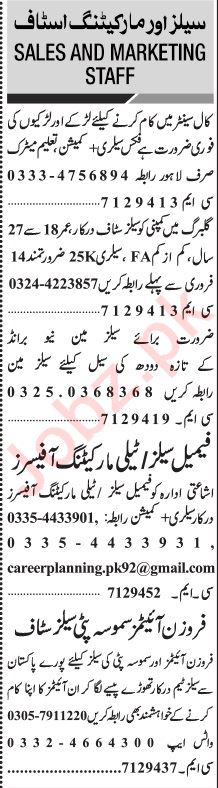 سیلز اور مارکیٹنگ اسٹاف
SALES AND MARKETING
STAFF
کال سینٹر میں کام کرنے کیلئے لڑکے اور لڑکیوں کی
فوری ضرورت ہے فکس سیلری+ کمیشن، تعلیم میٹرک
صرف لاہور رابطہ 0333-4756894
سی ایم 7129413
گلبرگ میں کمپنی کو سیلز سٹاف درکار عمر 18 سے 27
سال، کم از کم FA ، سیلری 25K ضرورتمند 14
فروری سے پہلے رابطہ کریں 0324-4223857
سی ایم 7129413
ضرورت برائے سیلز مین نیو برانڈ
کے تازہ دودھ کی سیل کیلئے سیلز مین
رابطہ کریں 0325.0368368
سی ایم۔ 7129419
فیمیل سیلز/ٹیلی مارکیٹنگ آفیسرز
اشاعتی ادارہ کو فیمیل سیلز /ٹیلی مارکیٹنگ آفیسرز
درکار سیلری+ کمیشن رابطہ: 0335-4433901,
0335-4433931,
careerplanning.pk92@gmail.com
سی ایم۔ 7129452
فروزن آئیٹمز سموسہ پٹی سیلز سٹاف
فروزن آئیٹمز اور سموسہ پٹی کی سیلز کیلئے پورے پاکستان
سے سیلز ٹیم درکار تھوڑے پیسے لگا کر ان آئیٹمز کا اپنا کام
کرنے کے خواہشمند بھی رابطہ کریں 0305-7911220
واٹس ایپ 0332-4664300
سی ایم۔ 7129437
Jobz.pk